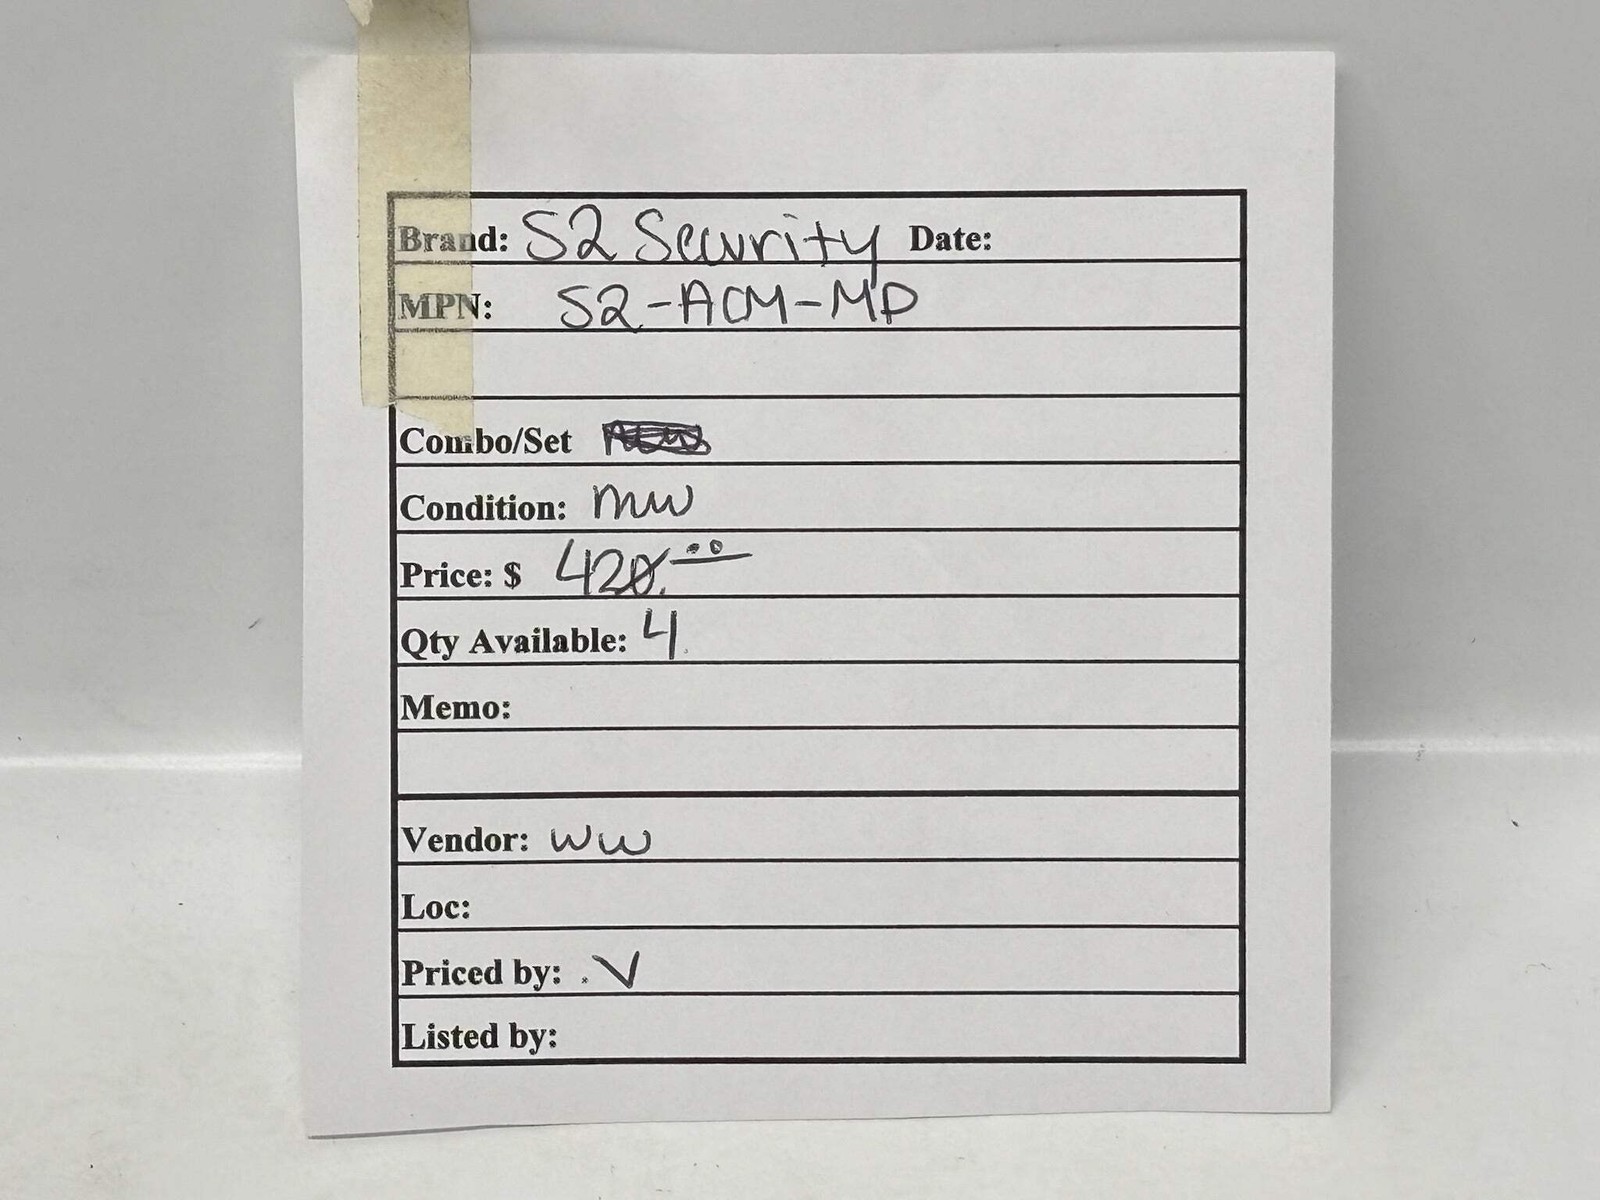 Brand: S2 Security Date:
MPN: S2-ACM-MP
Combo/Set
Condition: New
Price: $ 420.00
Qty Available: 4
Memo:
Vendor: WW
Loc:
Priced by: V
Listed by: